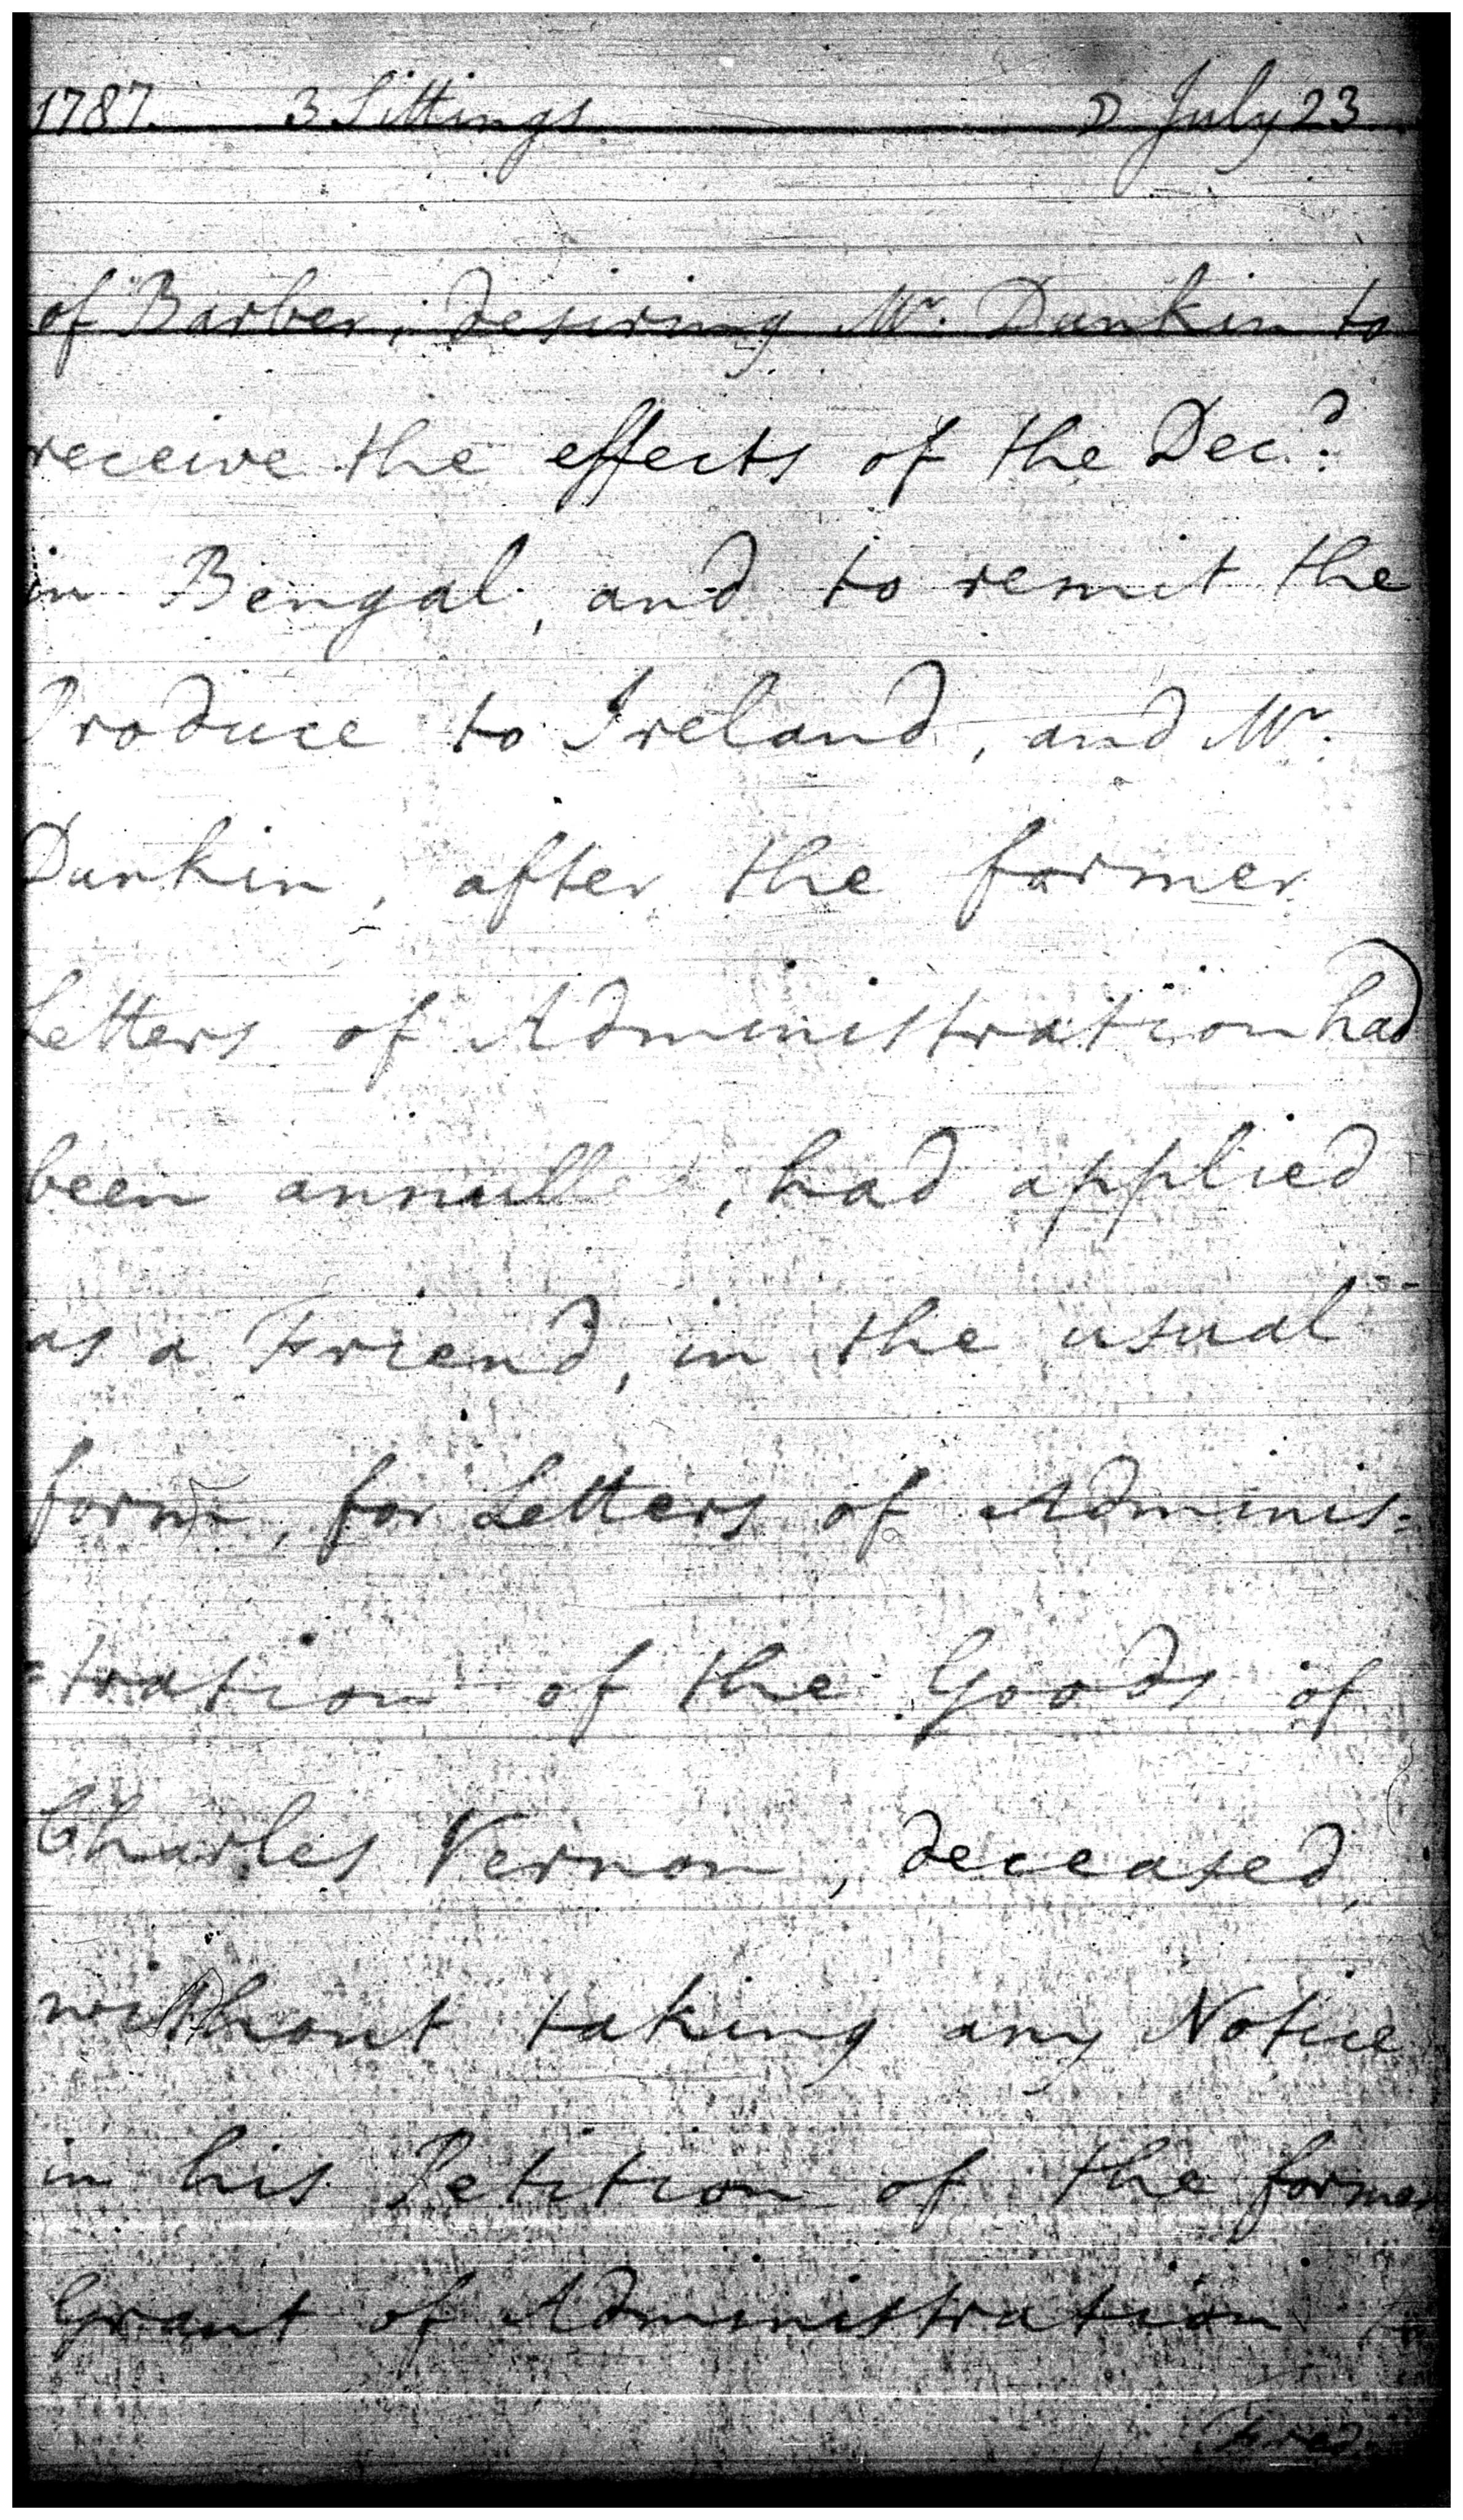 1787. 3 Sittings ☽ July 23
of Barber, desiring Mr. Dunkin to
receive the effects of the Decd.
in Bengal, and to remit the
Produce to Ireland, and Mr.
Dunkin, after the former
Letters of Administration had
been annulled, had applied
as a Friend, in the usual
form, for Letters of Adminis=
=tration of the Goods of
Charles Vernon, deceased,
without taking any Notice
in his Petition of the former
Grant of Administration